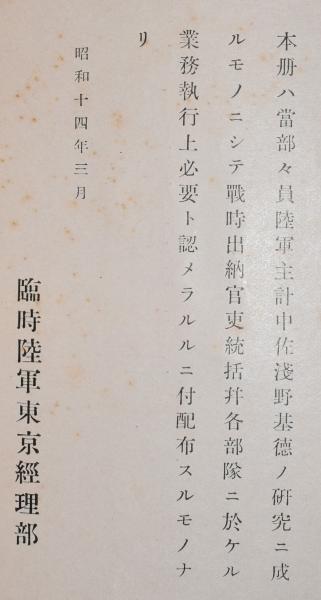 本册ハ當部々員陸軍主計中佐淺野基德ノ硏究ニ成
ルモノニシテ戰時出納官吏統括幷各部隊ニ於ケル
業務執行上必要ト認メラルルニ付配布スルモノナ
リ
昭和十四年三月
臨時陸軍東京經理部